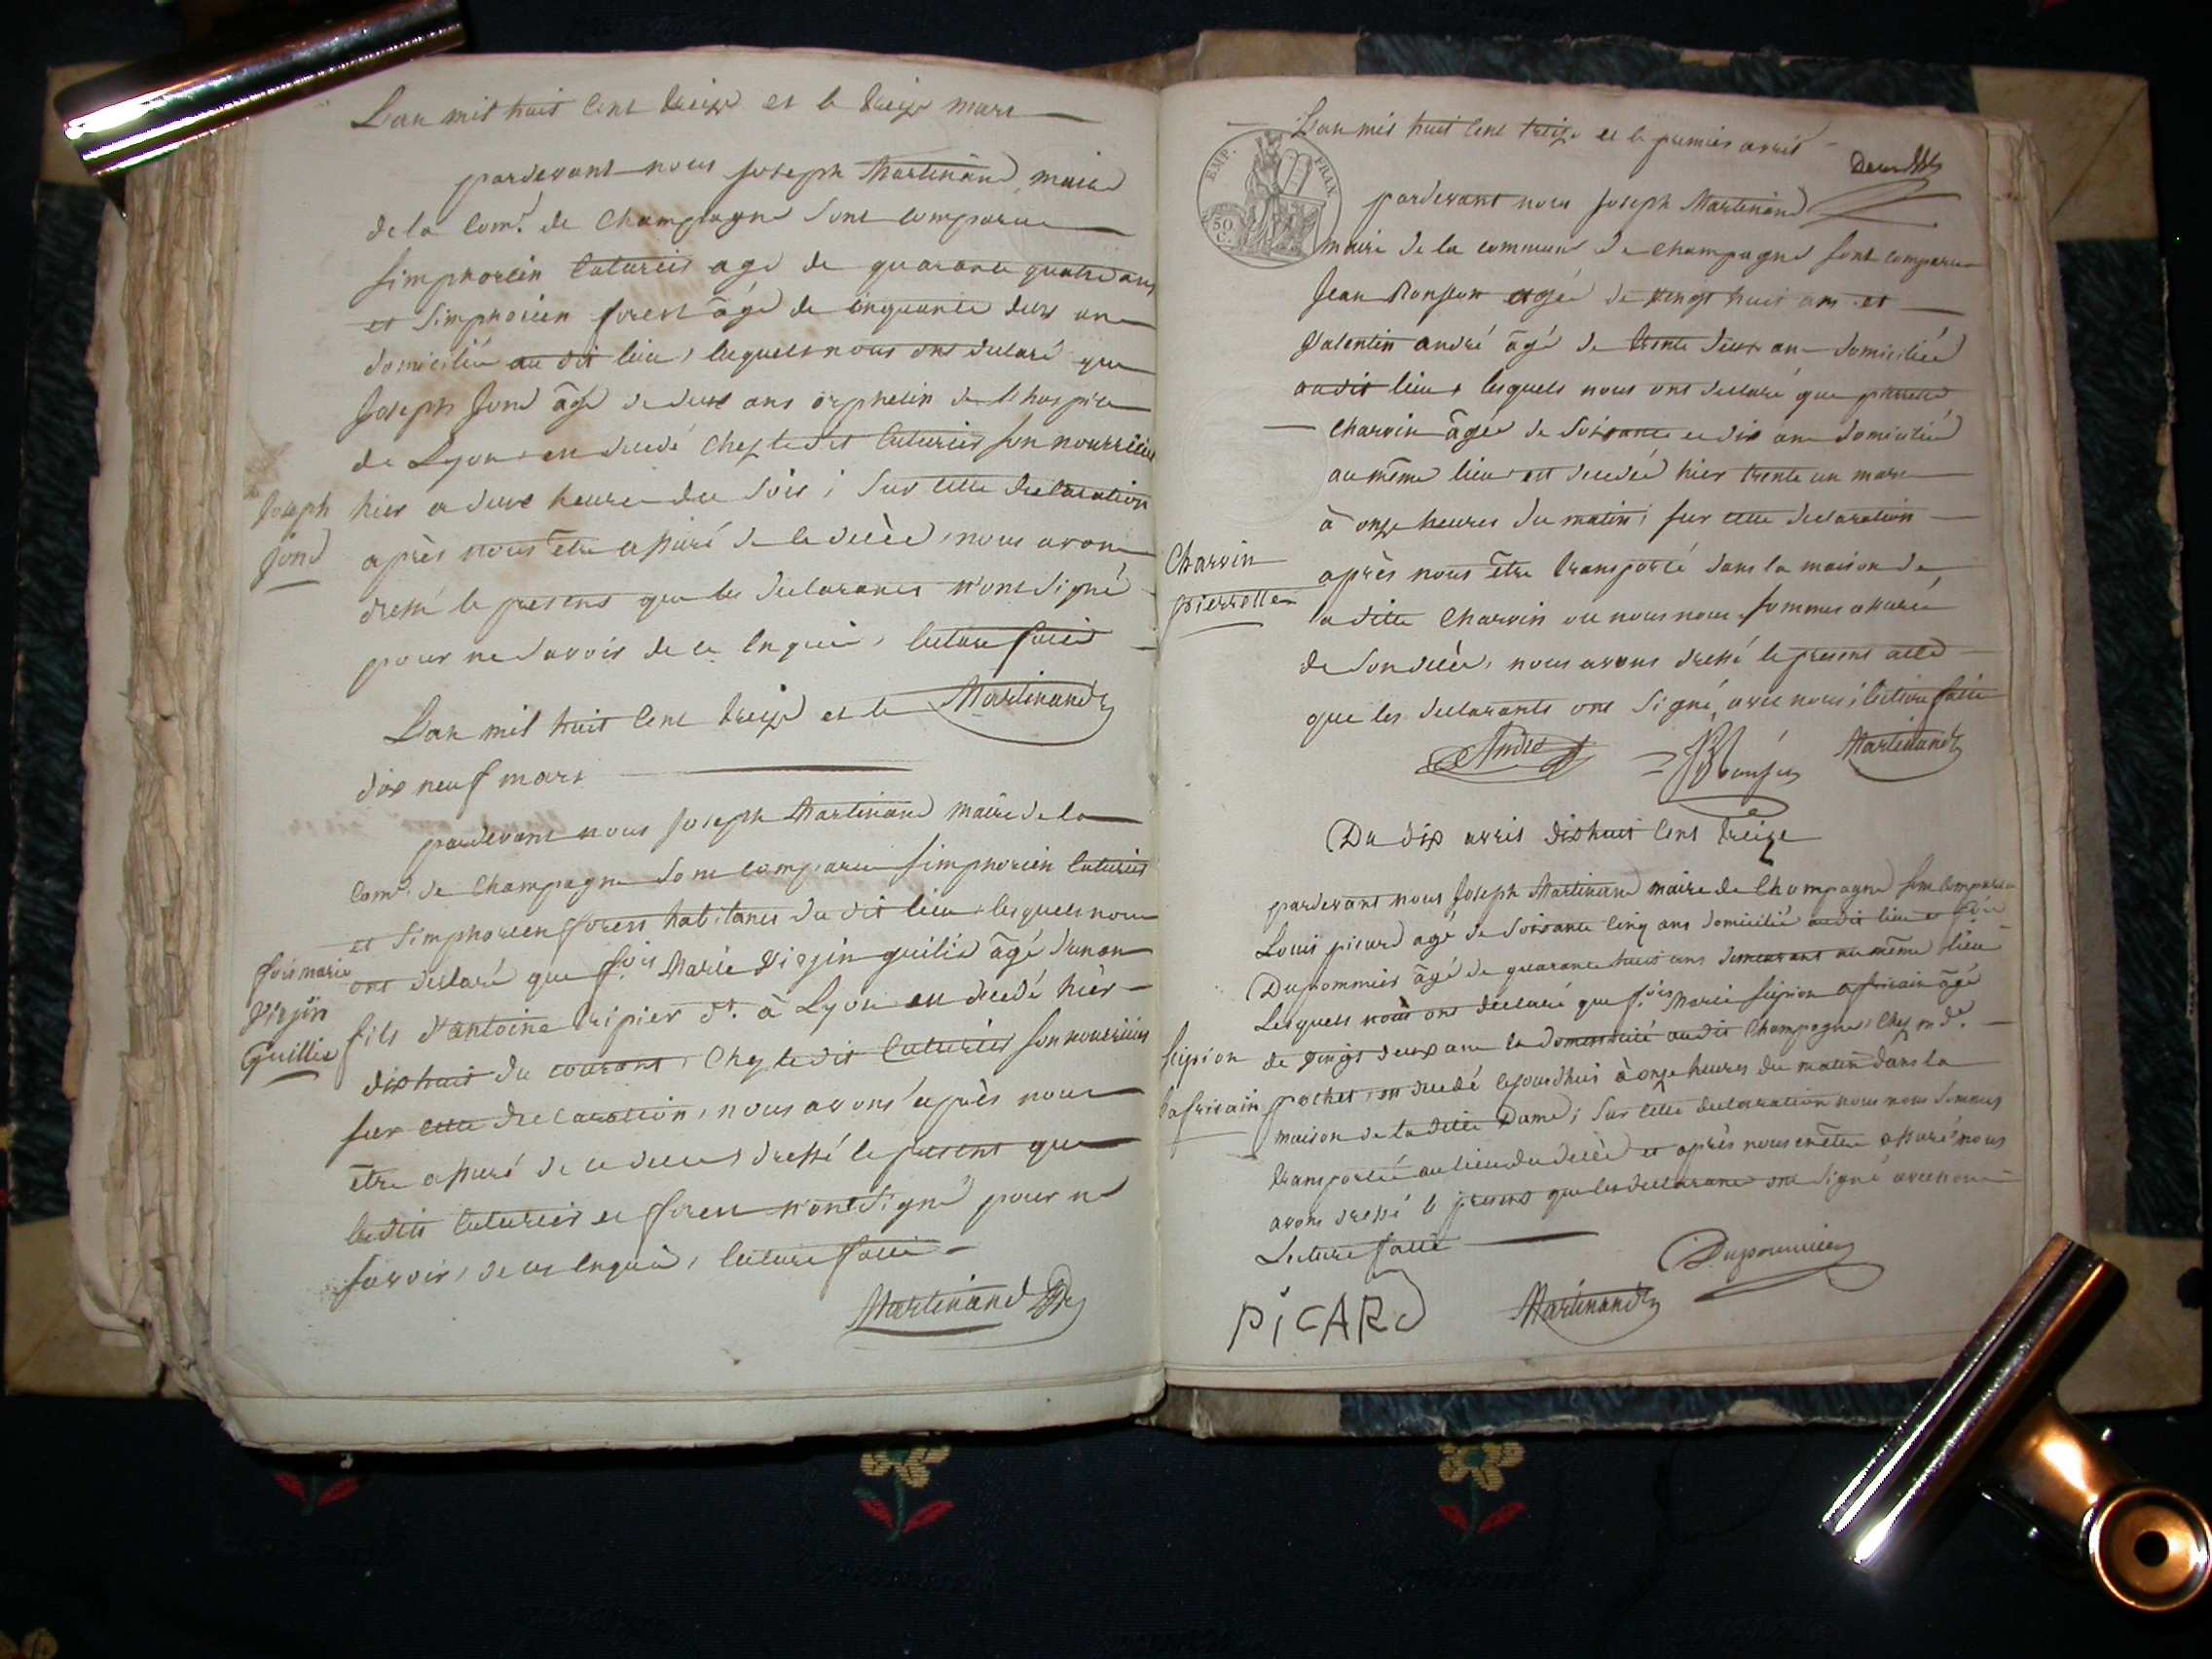 L'an mil huit cent treize et le treize mars
pardevant nous joseph Martinand, maire
de la Com.e de Champagne sont comparu
simphorien Laturier agé de quarante quatre ans
et simphorien forest âgé de cinquante deux ans
domiciliés au dit lieu, lesquels nous ont declaré que
Joseph Jond âgé de deux ans orphelin de l'hospice
de Lyon, est decedé chez le dit Laturier son nourricier
Joseph
hier a deux heures du soir; sur cette declaration
Jond
après nous être assuré de le decès, nous avons
dressé le present que les declarants n'ont signé
pour ne savoir de ce enquis, lecture faite
Martinand
L'an mil huit cent treize et le
dix neuf mars
pardevant nous joseph Martinand maire de la
Com.e de Champagne sont comparu simphorien Laturier
et simphorien forest habitants du dit lieu, lesquels nous
fois marie
ont declaré que f.ois Marie Virjin guilié âgé d'un an
Virjin
fils d'antoine tripier d.t à Lyon est decedé hier
Guillie
dixhuit du courant, chez le dit Laturier son nourricier
sur cette declaration, nous avons après nous
être assuré de ce deces dressé le present que
ledit Laturier et forest n'ont signé pour ne
savoir, de ce enquis, lecture faite
Martinand
L'an mil huit cent treize et le premier avril
EMP. FRAN.
50 C.
pardevant nous joseph Martinand
maire de la commune de champagne sont comparu
Jean Ronjon agée de vingt huit ans et
Valentin andré âgé de trente deux ans domiciliée
audit lieu, lesquels nous ont declaré que pierrette
charvin âgée de soixante et dix ans domicilié
au même lieu est decedée hier trente un mars
à onze heures du matin; sur cette declaration
Charvin
après nous être transporté dans la maison de
pierrette
la ditte Charvin ou nous nous sommes assurée
de son decès, nous avons dressé le present acte
que les declarants ont signé, avec nous; lecture faite
André
Martinand
Du dix avril dixhuit cent treize
pardevant nous Joseph Martinand maire de Champagne sont comparu
Louis picard agé de soixante cinq ans domicilié audit lieu et
Dupommier âgé de quarante huit ans demeurant au même lieu
Lesquels nous ont declaré que f.ois Marie scipion africain âgé
scipion
de vingt deux ans la domicilié audit Champagne, chez m.de
l'africain
pochet, est decedé cejourdhui à onze heures du matin dans la
maison de la ditte Dame; sur cette declaration nous nous sommes
transportée au lieu du decès et après nous en être assuré nous
avons dressé le present que les declarans ont signé avec nous
Lecture faite
Dupommier
PiCARd
Martinand